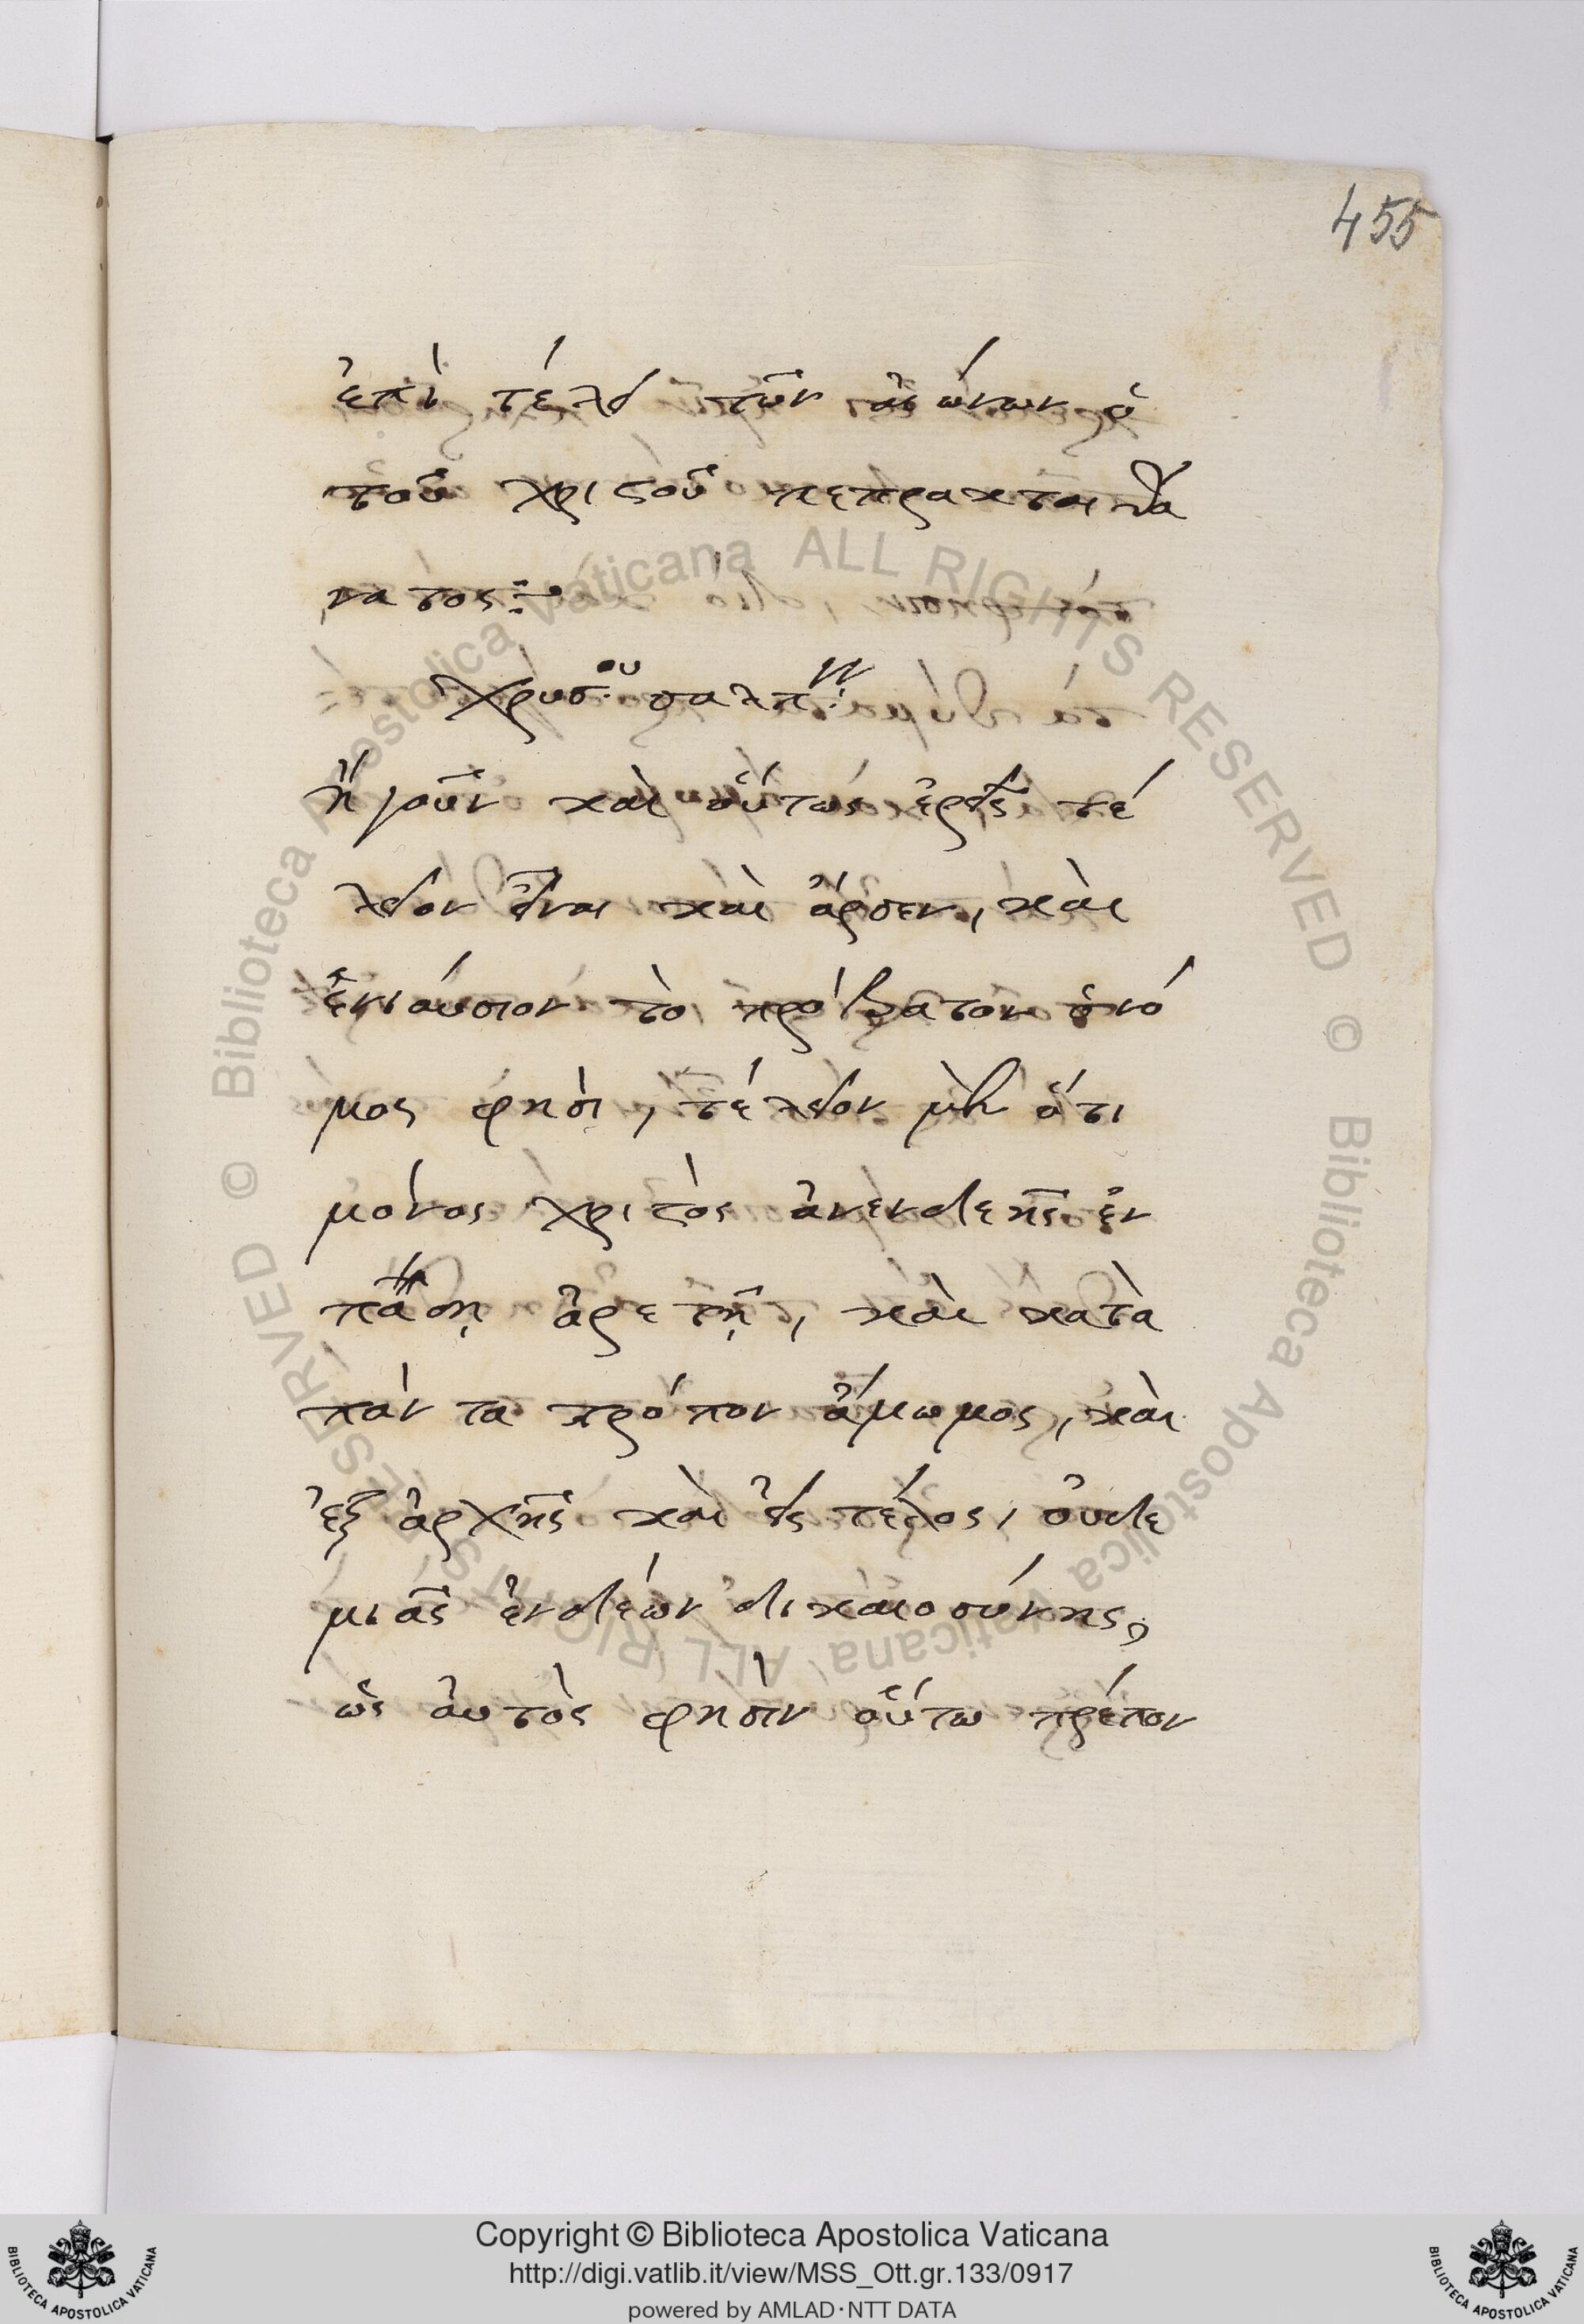 455
ἐπὶ τέλει τῶν αἰώνων ὁ
τοῦ χριστοῦ πεπρακται θά
νατος:
Χρυσου σαλπ
ἤγουν καὶ οὕτως ἐρεῖς τέ
λειον εἶναι καὶ ἄρσεν, καὶ
ἐνιαύσιον τὸ πρόβατον ὁ νό
μος φησὶ, τέλειον μὲν ὅτι
μόνος χριστὸς ἀνενδεῆς ἐν
πάσῃ ἀρετῇ, καὶ κατὰ
πάντα τρόπον ἄμωμος, καὶ
ἐξ ἀρχῆς καὶ εἰς τέλος, οὐδε
μιᾶς ἐνδέων δικαιοσύνης,
ὡς αὐτὸς φησὶν οὕτω πρέπον
Copyright © Biblioteca Apostolica Vaticana
http://digi.vatlib.it/view/MSS_Ott.gr.133/0917
powered by AMLAD·NTT DATA
© Biblioteca Apostolica Vaticana ALL RIGHTS RESERVED
© Biblioteca Apostolica Vaticana ALL RIGHTS RESERVED
BIBLIOTECA APOSTOLICA VATICANA
BIBLIOTECA APOSTOLICA VATICANA